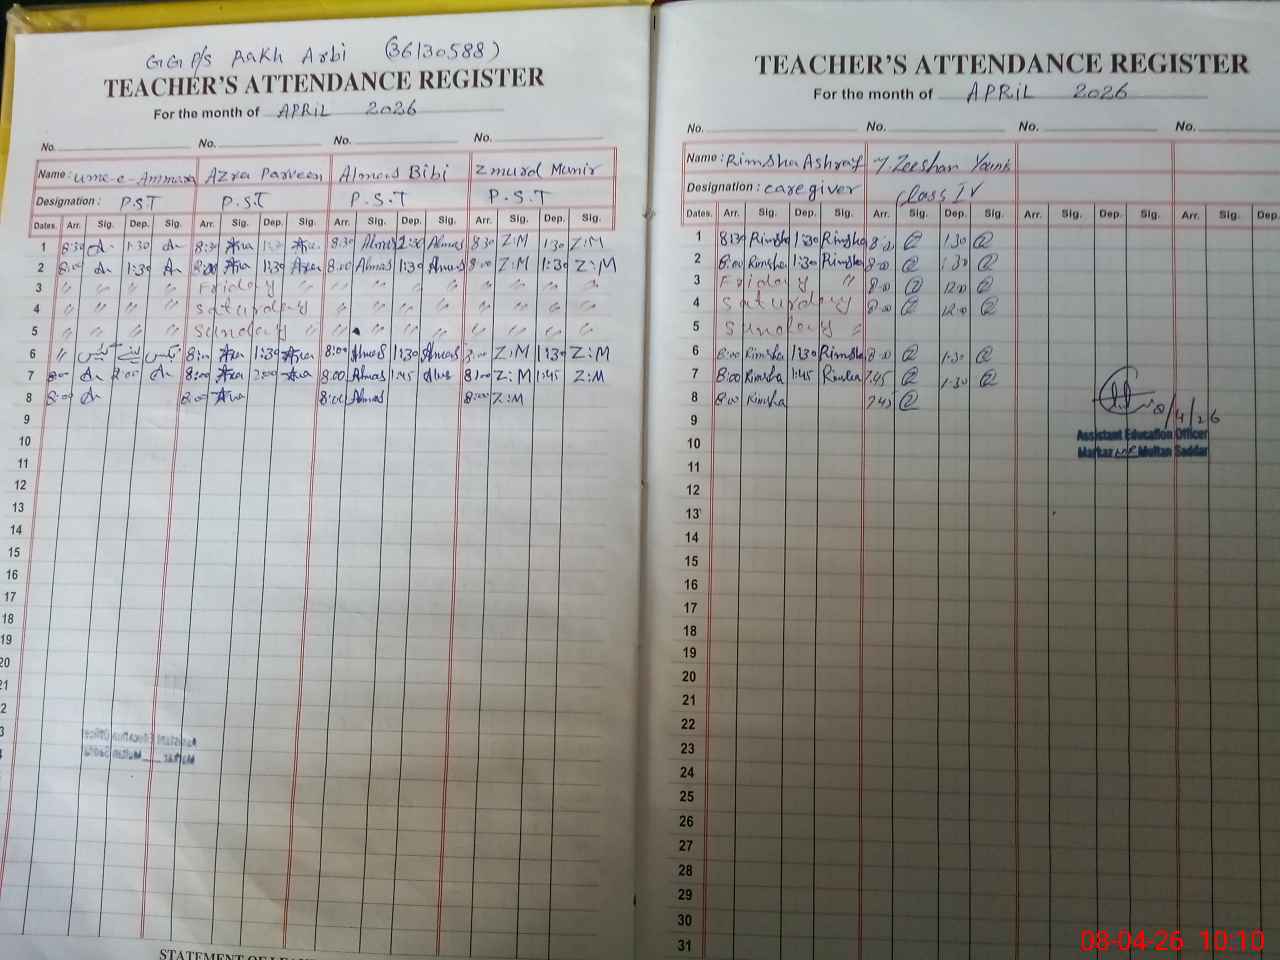 GG P/s Rakh Arbi (36130588)
TEACHER'S ATTENDANCE REGISTER
For the month of APRIL 2026
No. No. No. No.
Name: Ume-e-Ammara Azra Parveen Almas Bibi Zmurd Munir
Designation: P.S.T P.S.T P.S.T P.S.T
Dates. Arr. Sig. Dep. Sig. Arr. Sig. Dep. Sig. Arr. Sig. Dep. Sig. Arr. Sig. Dep. Sig.
1 8:30 1:30 8:30 8:30 Almas Almas 8:30 Z:M 1:30 Z:M
2 8:00 1:30 8:00 1:30 8:00 Almas 1:30 Almas 8:00 Z:M 1:30 Z:M
3 " " " " Friday " " " " " " " "
4 " " " " Saturday " " " " " " " "
5 " " " " Sunday " " " " " " " "
6 " 8:00 1:30 8:00 Almas 1:30 Almas 8:00 Z:M 1:30 Z:M
7 8:00 2:00 8:00 2:00 8:00 Almas 1:45 Almas 8:00 Z:M 1:45 Z:M
8 8:00 8:00 8:00 Almas 8:00 Z:M
9
10
11
12
13
14
15
16
17
18
19
20
21
Assistant Education Officer
Markaz Multan Saddar
TEACHER'S ATTENDANCE REGISTER
For the month of APRIL 2026
No. No. No. No.
Name: Rimsha Ashraf M. Zeeshan Younis
Designation: caregiver class IV
Dates. Arr. Sig. Dep. Sig. Arr. Sig. Dep. Sig. Arr. Sig. Dep. Sig. Arr. Sig. Dep.
1 8:30 Rimsha 1:30 Rimsha 8:30 1:30
2 8:00 Rimsha 1:30 Rimsha 8:00 1:30
3 Friday " 8:00 12:00
4 Saturday 8:00 12:00
5 Sunday "
6 8:00 Rimsha 1:30 Rimsha 8:00 1:30
7 8:00 Rimsha 1:45 Rimsha 7:45 1:30
8 8:00 Rimsha 7:45
8/4/26
9
Assistant Education Officer
10
Markaz Multan Saddar
11
12
13
14
15
16
17
18
19
20
21
22
23
24
25
26
27
28
29
30
31
08-04-26 10:10